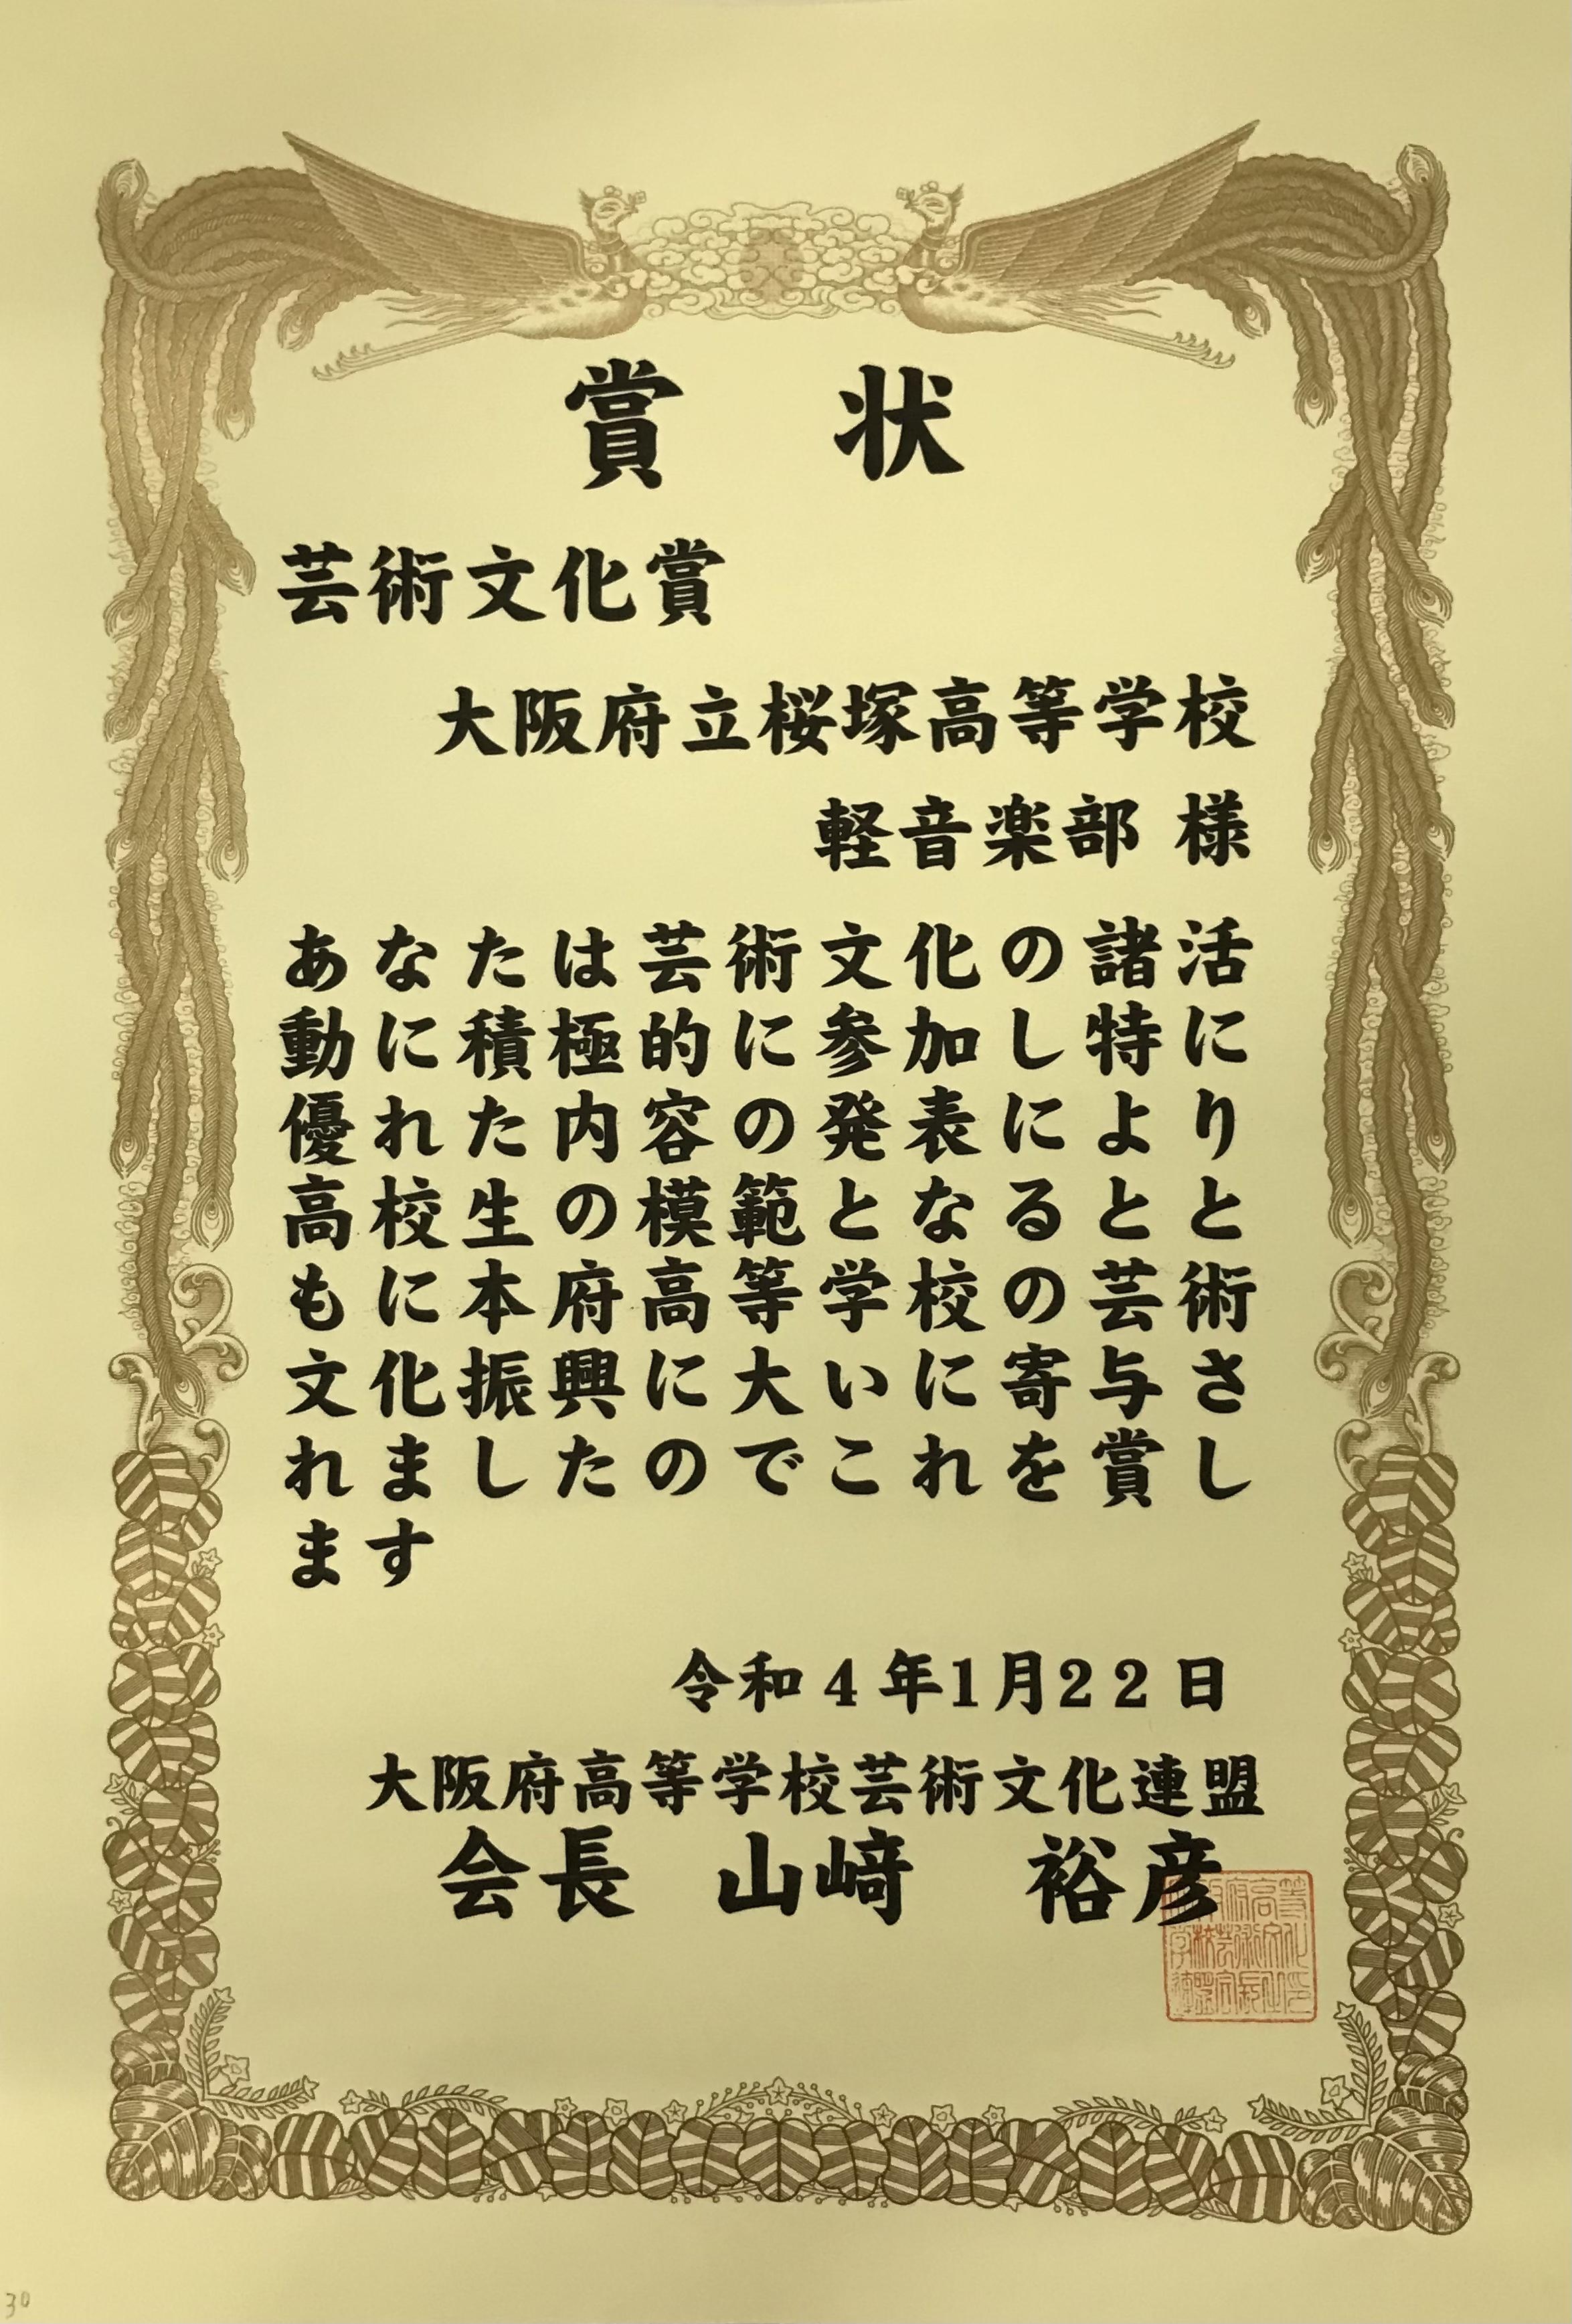 賞状
芸術文化賞
大阪府立桜塚高等学校
軽音楽部 様
あなたは芸術文化の諸活
動に積極的に参加し特に
優れた内容の発表により
高校生の模範となるとと
もに本府高等学校の芸術
文化振興に大いに寄与さ
れましたのでこれを賞し
ます
令和4年1月22日
大阪府高等学校芸術文化連盟
会長 山﨑 裕彦
30